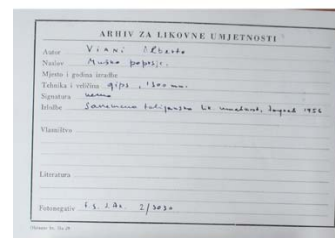 ARHIV ZA LIKOVNE UMJETNOSTI
Autor Viani Alberto
Naslov Muško poprsje.
Mjesto i godina izradbe
Tehnika i veličina gips, 1300 mm.
Signatura nema
Izložbe Savremena talijanska umetnost, Zagreb 1956
Vlasništvo
Literatura
Fotonegativ 2/3030